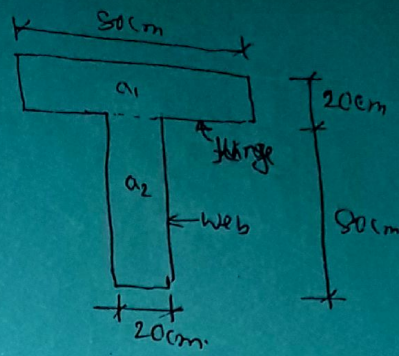 80cm
a1
20cm
flange
a2
web
80cm
20cm.